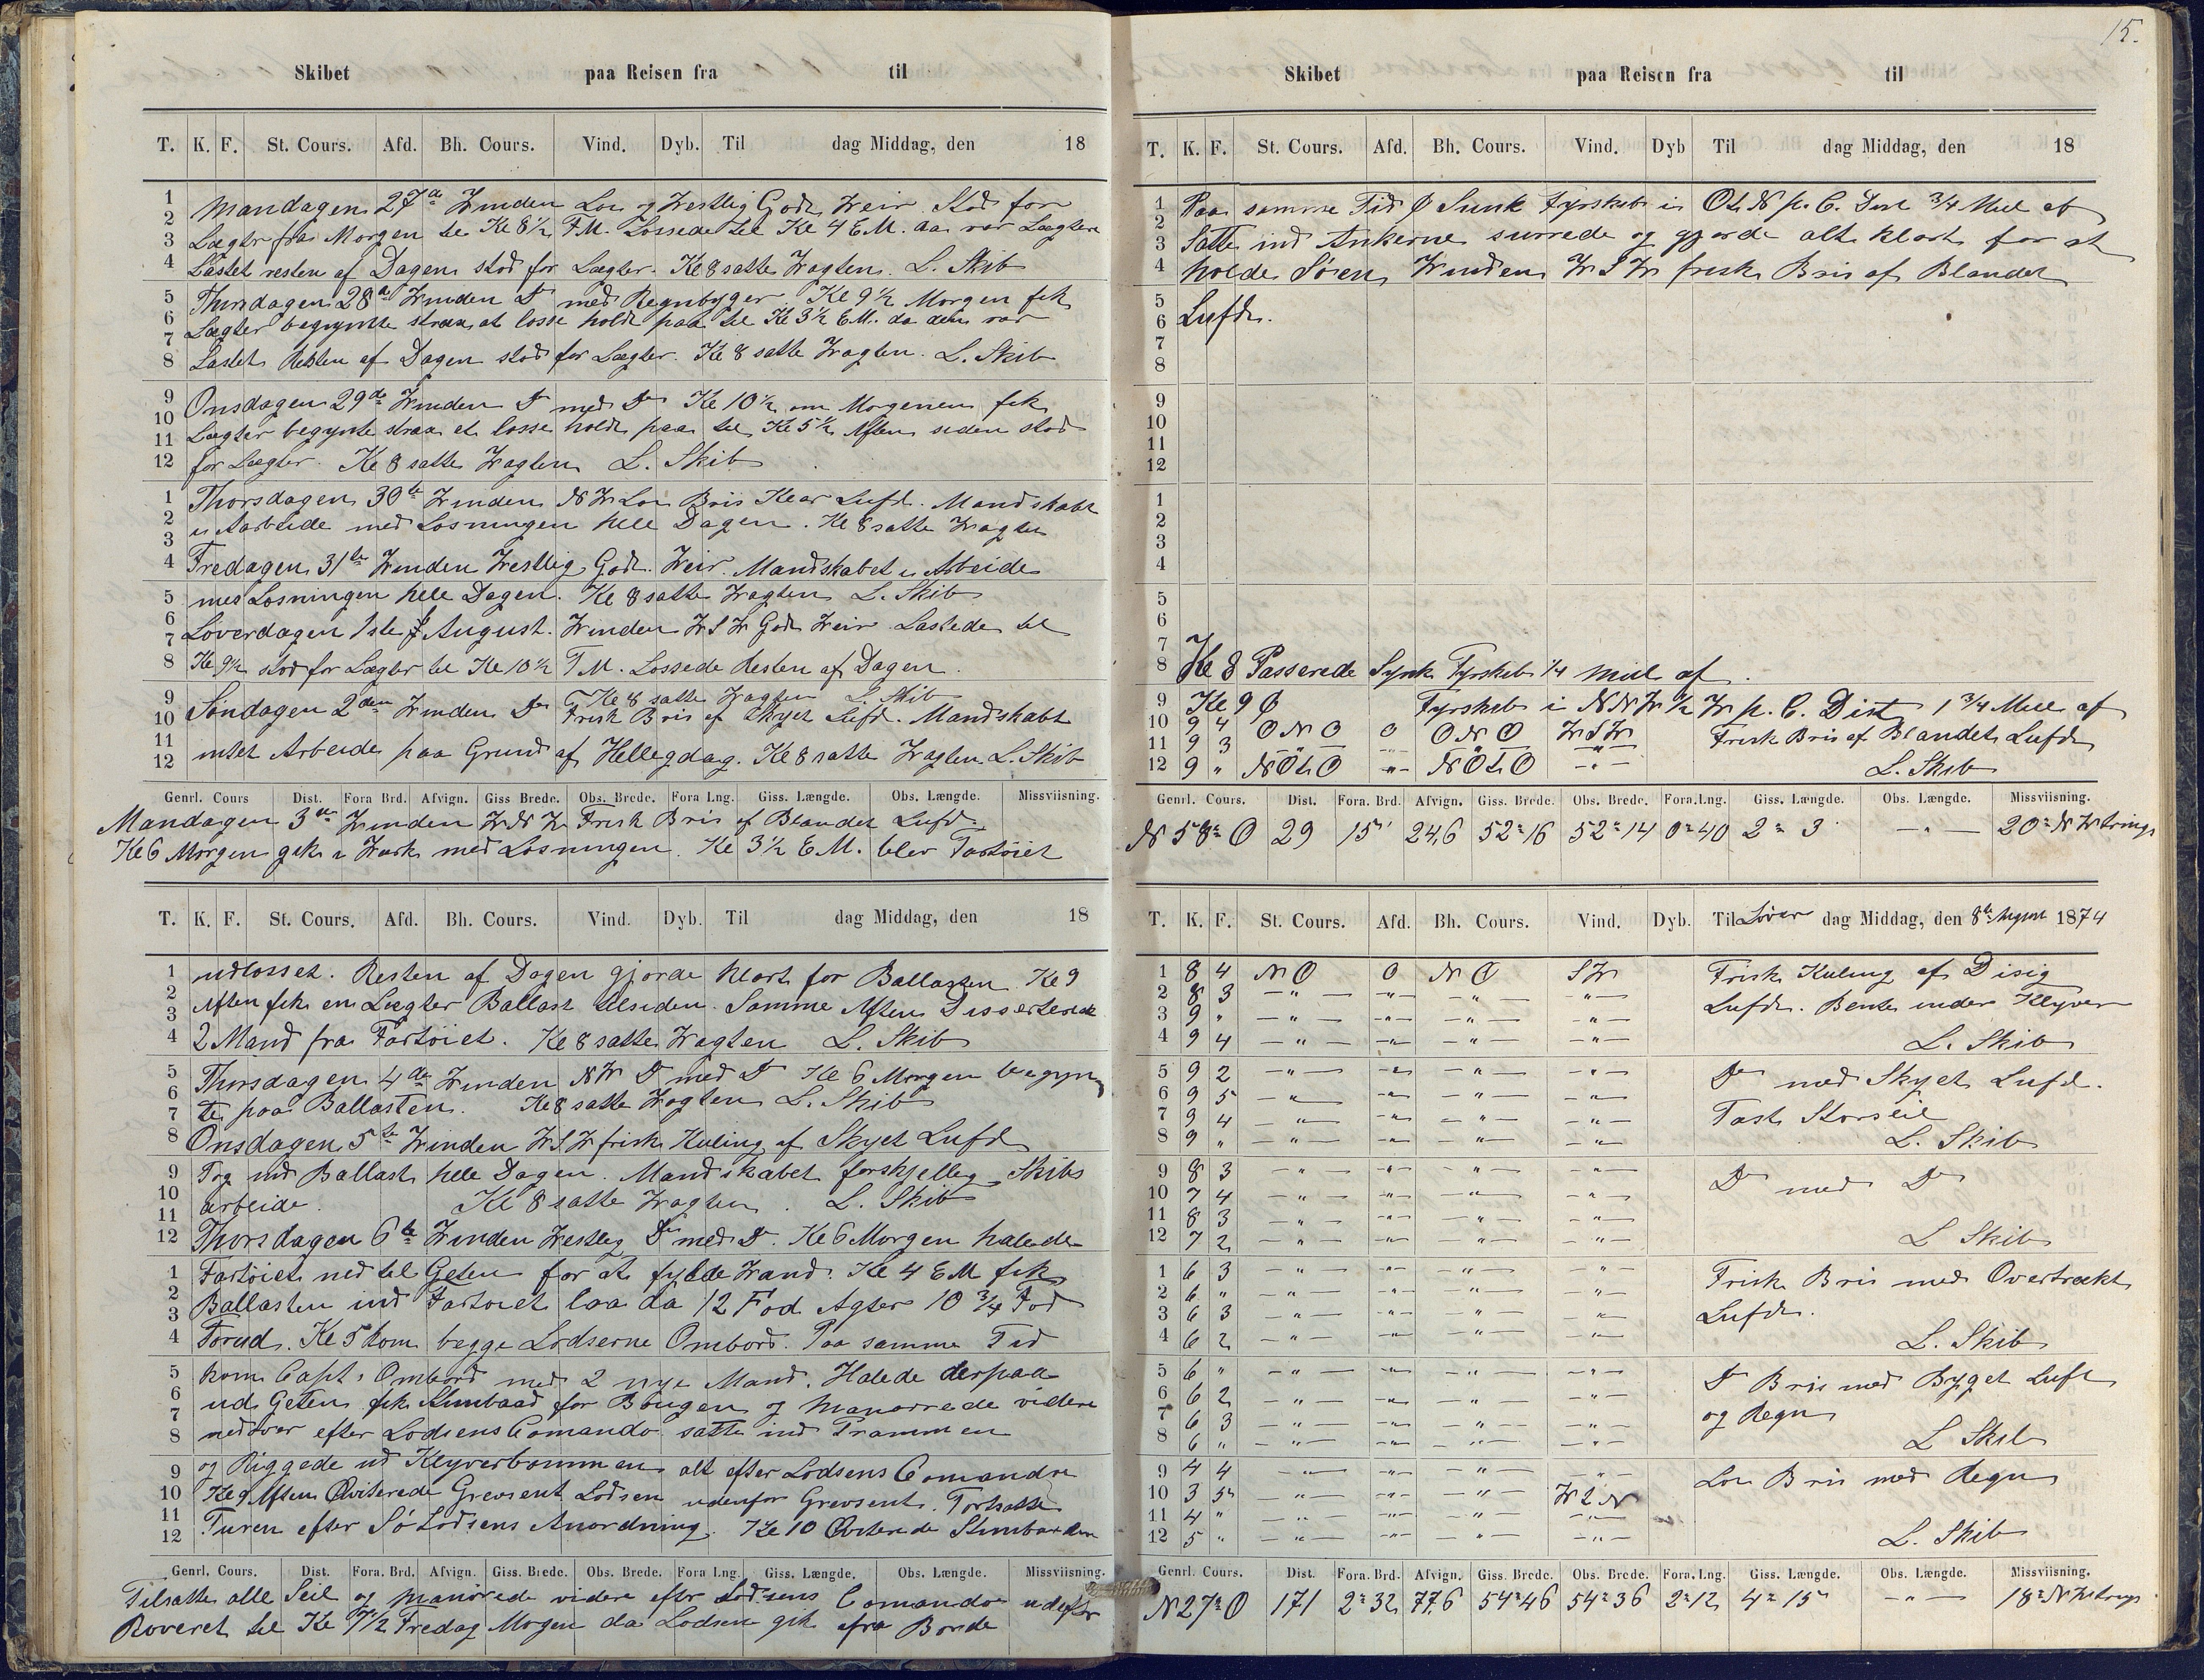 Skibet paa Reisen fra til
T. K. F. St. Cours. Afd. Bh. Cours. Vind. Dyb. Til dag Middag, den 18
1
2
3
4
5
6
7
8
9
10
11
12
1
2
3
4
5
6
7
8
9
10
11
12
Mandagen 27de Winden Lou og Westlig Godt Weir Stod for
Lægter fra Morgen til Kl 8½ F.M. Lossede til Kl 4 E.M. aa var Lægter
Lastet resten af Dagen stod for Lægter. Kl 8 satte Wagten. L. Skib
Thirsdagen 28de Winden Do med Regnbyger. Kl 9½ Morgen fik
Lægter begynte strax at losse holdt paa til Kl 3½ E.M. da den var
Lastet Resten af Dagen stod for Lægter. Kl 8 satte Wagten. L. Skib
Onsdagen 29de Winden Do med Do Kl 10½ om Morgenen fik
Lægter begynte strax at losse holdt paa til Kl 5½ Aften siden stod
for Lægter. Kl 8 satte Wagten L. Skib
Thorsdagen 30te Winden N W Lou Bris Klar Luft. Mandskabt
i Aarbeide med Losningen hele Dagen. Kl 8 satte Wagten
Fredagen 31te Winden Westlig Godt. Weir. Mandskabet i Arbeide
med Losningen hele Dagen. Kl 8 satte Wagten L. Skib
Loverdagen 1ste August. Winden W S W Godt Weir Lastede til
Kl 9½ stod for Lægter til Kl 10½ F.M. Lossede Resten af Dagen.
Kl 8 satte Wagten L. Skib
Søndagen 2den Winden Do Frisk Bris af Skyet Luft. Mandskabt
intet Arbeide paa Grund af Hellegdag. Kl 8 satte Wagten L. Skib
Genrl. Cours Dist. Fora Brd. Afvign. Giss Brede. Obs. Brede. Fora Lng. Giss. Længde. Obs. Længde. Missviisning.
Mandagen 3de Winden W N W Frisk Bris af Blandet Luft
Kl 6 Morgen gik i Værk med Losningen. Kl 3½ E.M. blev Fartöiet
T. K. F. St. Cours. Afd. Bh. Cours. Vind. Dyb. Til dag Middag, den 18
1
2
3
4
5
6
7
8
9
10
11
12
1
2
3
4
5
6
7
8
9
10
11
12
udlosset. Resten af Dagen gjorde klart for Ballasten. Kl 9
Aften fik en Lægter Ballast tilsiden. Samme Aften Disserterede
2 Mand fra Fartöiet. Kl 8 satte Wagten L. Skib
Thirsdagen 4de Winden N W Do med Do Kl 6 Morgen begyn
te paa Ballasten. Kl 8 satte Wagten L. Skib
Onsdagen 5te Winden W S W frisk Kuling af Skyet Luft
Tog ind Ballast hele Dagen. Mandskabet forskjellig Skibs
arbeide. Kl 8 satte Wagten. L. Skib
Thorsdagen 6te Winden Westlig Do med Do. Kl 6 Morgen halede
Fartöiet ned til Geten for at fylde Wand. Kl 4 E M fik
Ballasten ind Fartoiet laa da 12 Fod Agter 10¾ Fod
Forud. Kl 5 kom begge Lodserne Ombord. Paa samme Tid
kom Capt. Ombord med 2 nye Mand. Halede derpaa
ud Geten fik Stimbaad for Bougen og Manørrede videre
nedover efter Lodsens Comando satte ind Prammen
og Riggede ud Klyverbommen alt efter Lodsens Comando
Kl 9 Aften Qviterede Grevsent Lodsen udenfor Grevsent. Fortsatte
Turen efter Sö Lodsens Anordning. Kl 10 Qviterede Stimbaaden
Genrl. Cours. Dist. Fora. Brd. Afvign. Giss. Brede. Obs. Brede. Fora Lng. Giss. Længde. Obs. Længde. Missviisning.
Tilsatte alle Seil og manörede videre efter Lodsens Comando udefter
Roveret til Kl 7½ Fredag Morgen da Lodsen gik fra Borde
15.
Skibet paa Reisen fra til
T. K. F. St. Cours. Afd. Bh. Cours. Vind. Dyb Til dag Middag, den 18
1
2
3
4
5
6
7
8
9
10
11
12
1
2
3
4
5
6
7
Paa samme Tid Sunk Fyrskib i O t N p. C. Dist ¾ Miil af
Satte ind Ankerne surrede og gjorde alt klart for at
holde Søen Winden W S W frisk Bris af Blandet
Luft.
8 Kl 8 Passerede Synk Fyrskib ¼ Miil af.
9 Kl 9 Fyrskib i N N W ½ W p. C. Dist 1¾ Miil af
10 9 4 O N O 0 O N O W S W Frisk Bris af Blandet Luft
11 9 3 -"- -"- -"- -"-
12 9 " N O t O -"- N O t O -"- L. Skib
Genrl. Cours. Dist. Fora. Brd. Afvign. Giss. Brede. Obs. Brede. Fora. Lng. Giss. Længde. Obs. Længde. Missviisning.
N 58° O 29 15' 24,6 52° 16 52° 14 0° 40 2° 3 -"- 20° N Westrings
T. K. F. St. Cours. Afd. Bh. Cours. Vind. Dyb. Til Løver dag Middag, den 8de August 1874
1 8 4 N O 0 N O S W Frisk Kuling af Disig
2 8 3 -"- -"- -"- -"- Luft. Bente under Klyver
3 9 " -"- -"- -"- -"-
4 9 4 -"- -"- -"- -"- L. Skib
5 9 2 -"- -"- -"- -"- Do med Skyet Luft.
6 9 5 -"- -"- -"- -"-
7 9 4 -"- -"- -"- -"- Fast Storseil
8 9 " -"- -"- -"- -"- L. Skib
9 8 3 -"- -"- -"- -"- Do med Do
10 7 4 -"- -"- -"- -"-
11 8 3 -"- -"- -"- -"-
12 7 2 -"- -"- -"- -"- L Skib
1 6 3 -"- -"- -"- -"- Frisk Bris med Overtrækt
2 6 " -"- -"- -"- -"-
3 6 3 -"- -"- -"- -"- Luft.
4 6 2 -"- -"- -"- -"- L. Skib
5 6 " -"- -"- -"- -"- Do Bris med Byget Luft
6 6 2 -"- -"- -"- -"-
7 6 3 -"- -"- -"- -"- og Regn
8 6 " -"- -"- -"- -"- L Skib
9 4 4 -"- -"- -"- -"- Lou Bris med Regn
10 3 5 -"- -"- -"- W t N
11 4 " -"- -"- -"- -"-
12 5 " -"- -"- -"- -"- L. Skib
Genrl. Cours. Dist. Fora. Brd. Afvign. Giss. Brede. Obs. Brede. Fora. Lng. Giss. Længde. Obs. Længde. Missviisning.
N 27° O 171 2° 32 77,6 54° 46 54° 36 2° 12 4° 15 -"- 18° N Westrings